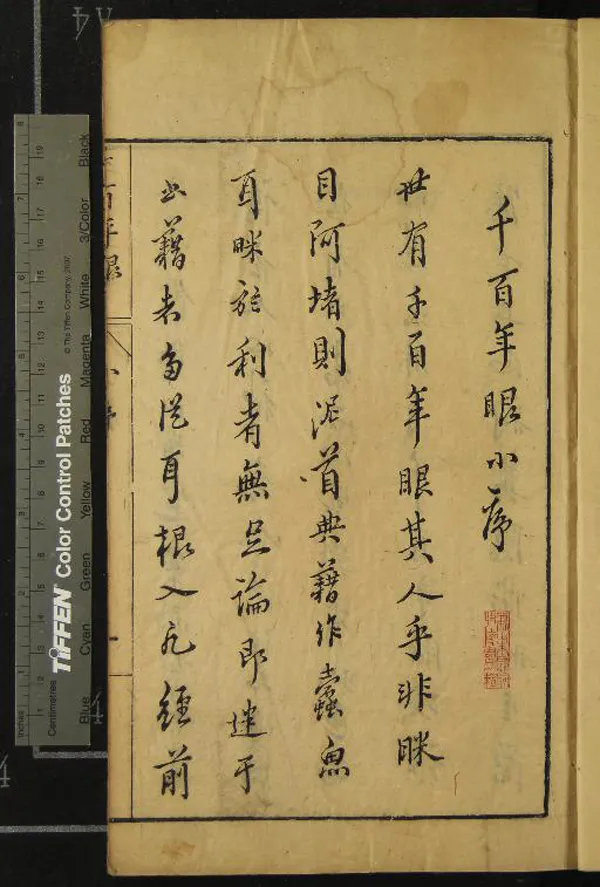 千百年眼小序
世有千百年眼其人乎非眯
目阿堵則泥首典籍作蠹魚
耳眯於利者無足論即迷于
書籍者多從耳根入凡經前
百年眼
小序
TIFFEN Color Control Patches
© The Tiffen Company, 2007
Blue Cyan Green Yellow Red Magenta White 3/Color Black
Inches
Centimetres